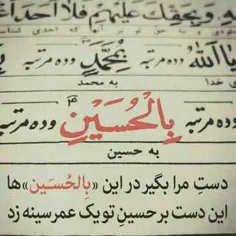 وَ بِحَقِّكَ عَلَیْهِمْ فَلا اَحَدَ اَعْ
یا اَللهُ و ده مرتبه بِمُحَمَّدٍ و ده مرتبه
خدا به محمد
و ده مرتبه بِالْحُسَیْنِ و ده مرتبه
به حسین
دستِ مرا بگیر در این «بِالحُسَین» ها
این دست بر حسینِ تو یک عمر سینه زد